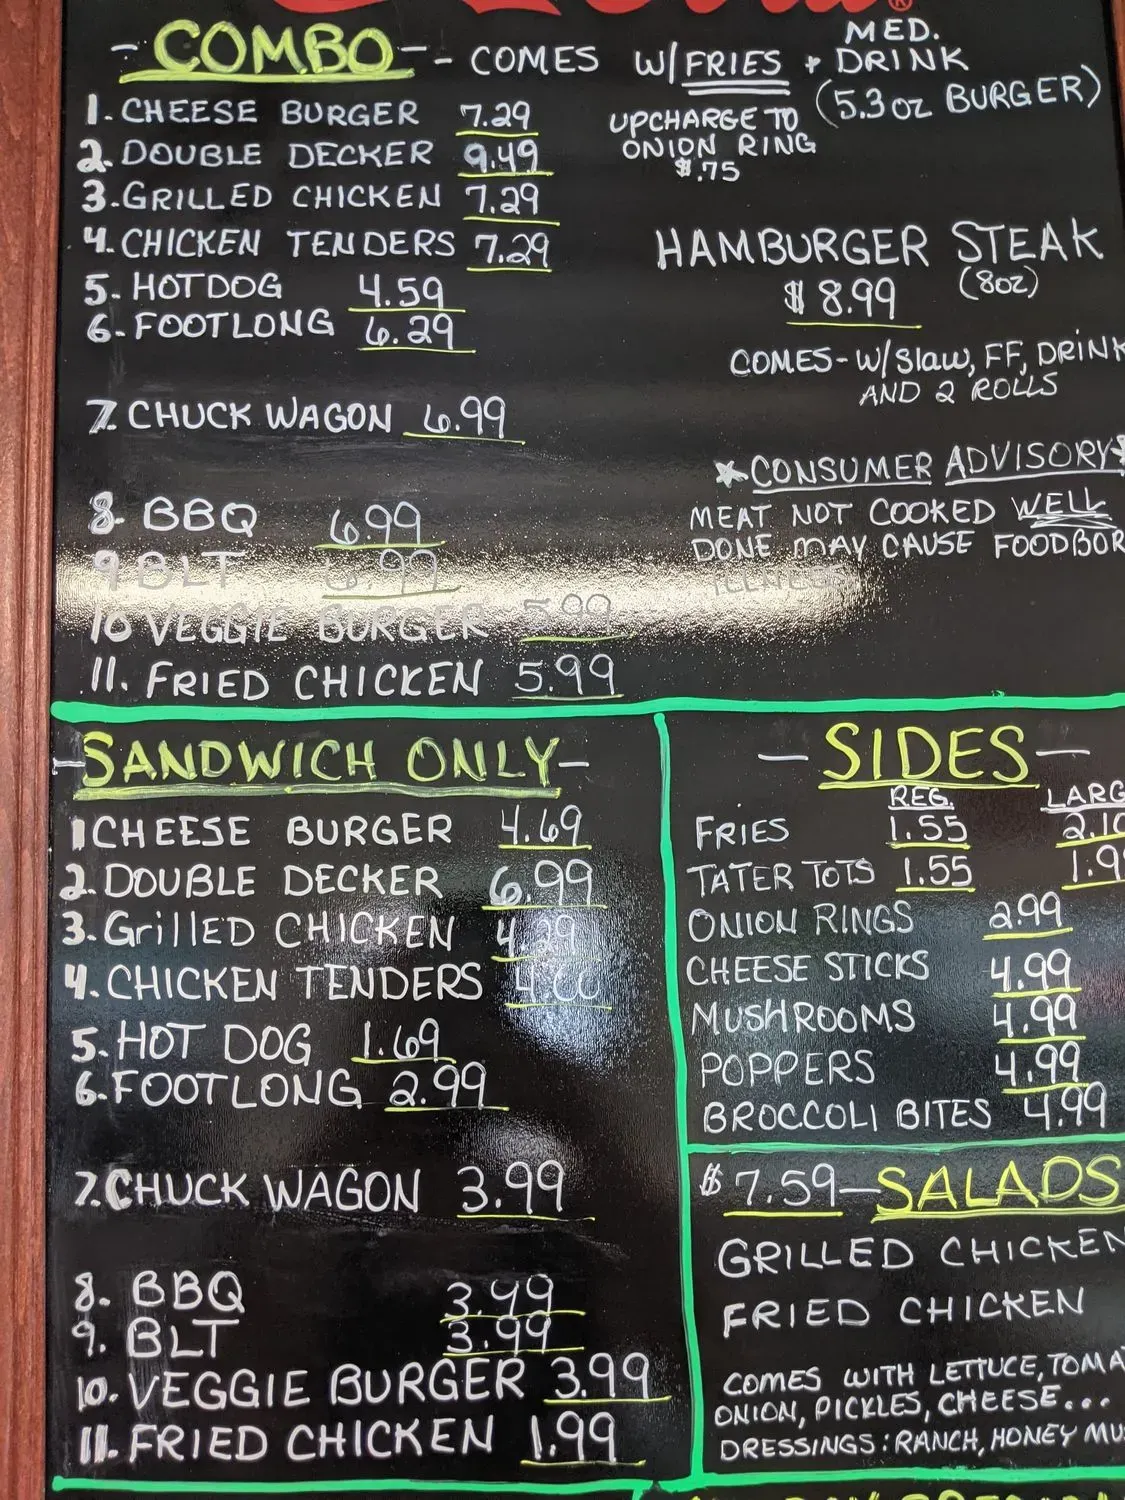 - COMBO - - COMES W/ FRIES + MED. DRINK
(5.3 oz BURGER)
1. CHEESE BURGER 7.29
2. DOUBLE DECKER 9.49
3. GRILLED CHICKEN 7.29
4. CHICKEN TENDERS 7.29
5. HOTDOG 4.59
6. FOOTLONG 6.29
7. CHUCK WAGON 6.99
8. BBQ 6.99
9 BLT 6.99
10 VEGGIE BURGER 5.99
11. FRIED CHICKEN 5.99
UPCHARGE TO
ONION RING
$.75
HAMBURGER STEAK
$ 8.99 (8oz)
COMES - W/ Slaw, FF, DRINK
AND 2 ROLLS
*CONSUMER ADVISORY*
MEAT NOT COOKED WELL
DONE MAY CAUSE FOODBOR
ILLNESS
- SANDWICH ONLY -
1 CHEESE BURGER 4.69
2. DOUBLE DECKER 6.99
3. GrillED CHICKEN 4.29
4. CHICKEN TENDERS
5. HOT DOG 1.69
6. FOOTLONG 2.99
7. CHUCK WAGON 3.99
8. BBQ 3.99
9. BLT 3.99
10. VEGGIE BURGER 3.99
11. FRIED CHICKEN 1.99
- SIDES -
REG. LARG
FRIES 1.55 2.10
TATER TOTS 1.55 1.9
ONION RINGS 2.99
CHEESE STICKS 4.99
MUSHROOMS 4.99
POPPERS 4.99
BROCCOLI BITES 4.99
$ 7.59 - SALADS
GRILLED CHICKEN
FRIED CHICKEN
COMES WITH LETTUCE, TOMA
ONION, PICKLES, CHEESE...
DRESSINGS: RANCH, HONEY MU